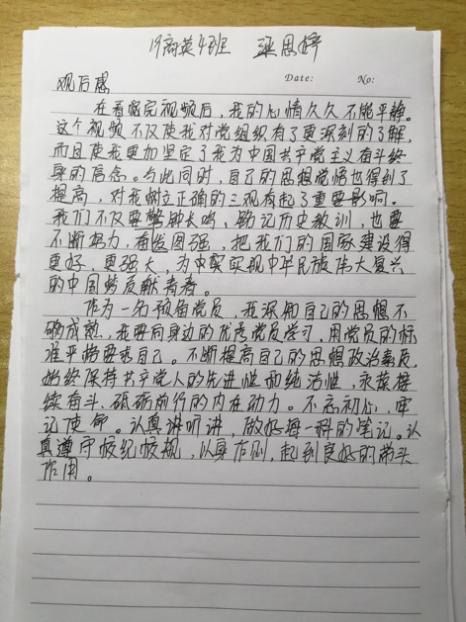 19商英4班 梁思婷
Date: No:
观后感
在看完视频后，我的心情久久不能平静。
这个视频不仅使我对党组织有了更深刻的了解，
而且使我更加坚定了我为中国共产党主义奋斗终
身的信念。与此同时，自己的思想觉悟也得到了
提高，对我树立正确的三观有起了重要影响。
我们不仅要警钟长鸣、勒记历史教训，也要
不断努力，奋发图强，把我们的国家建设得
更好，更强大，为中实现中华民族伟大复兴
的中国梦贡献青春。
作为一名预备党员，我深知自己的思想不
够成熟，我要向身边的优秀党员学习，用党员的标
准严格要求自己。不断提高自己的思想政治素质，
始终保持共产党人的先进性和纯洁性，永葆接
续奋斗、砥砺前行的内在动力。不忘初心，牢
记使命。认真讲听讲，做好每一科的笔记。认
真遵守校纪校规，以身作则，起到良好的带头
作用。